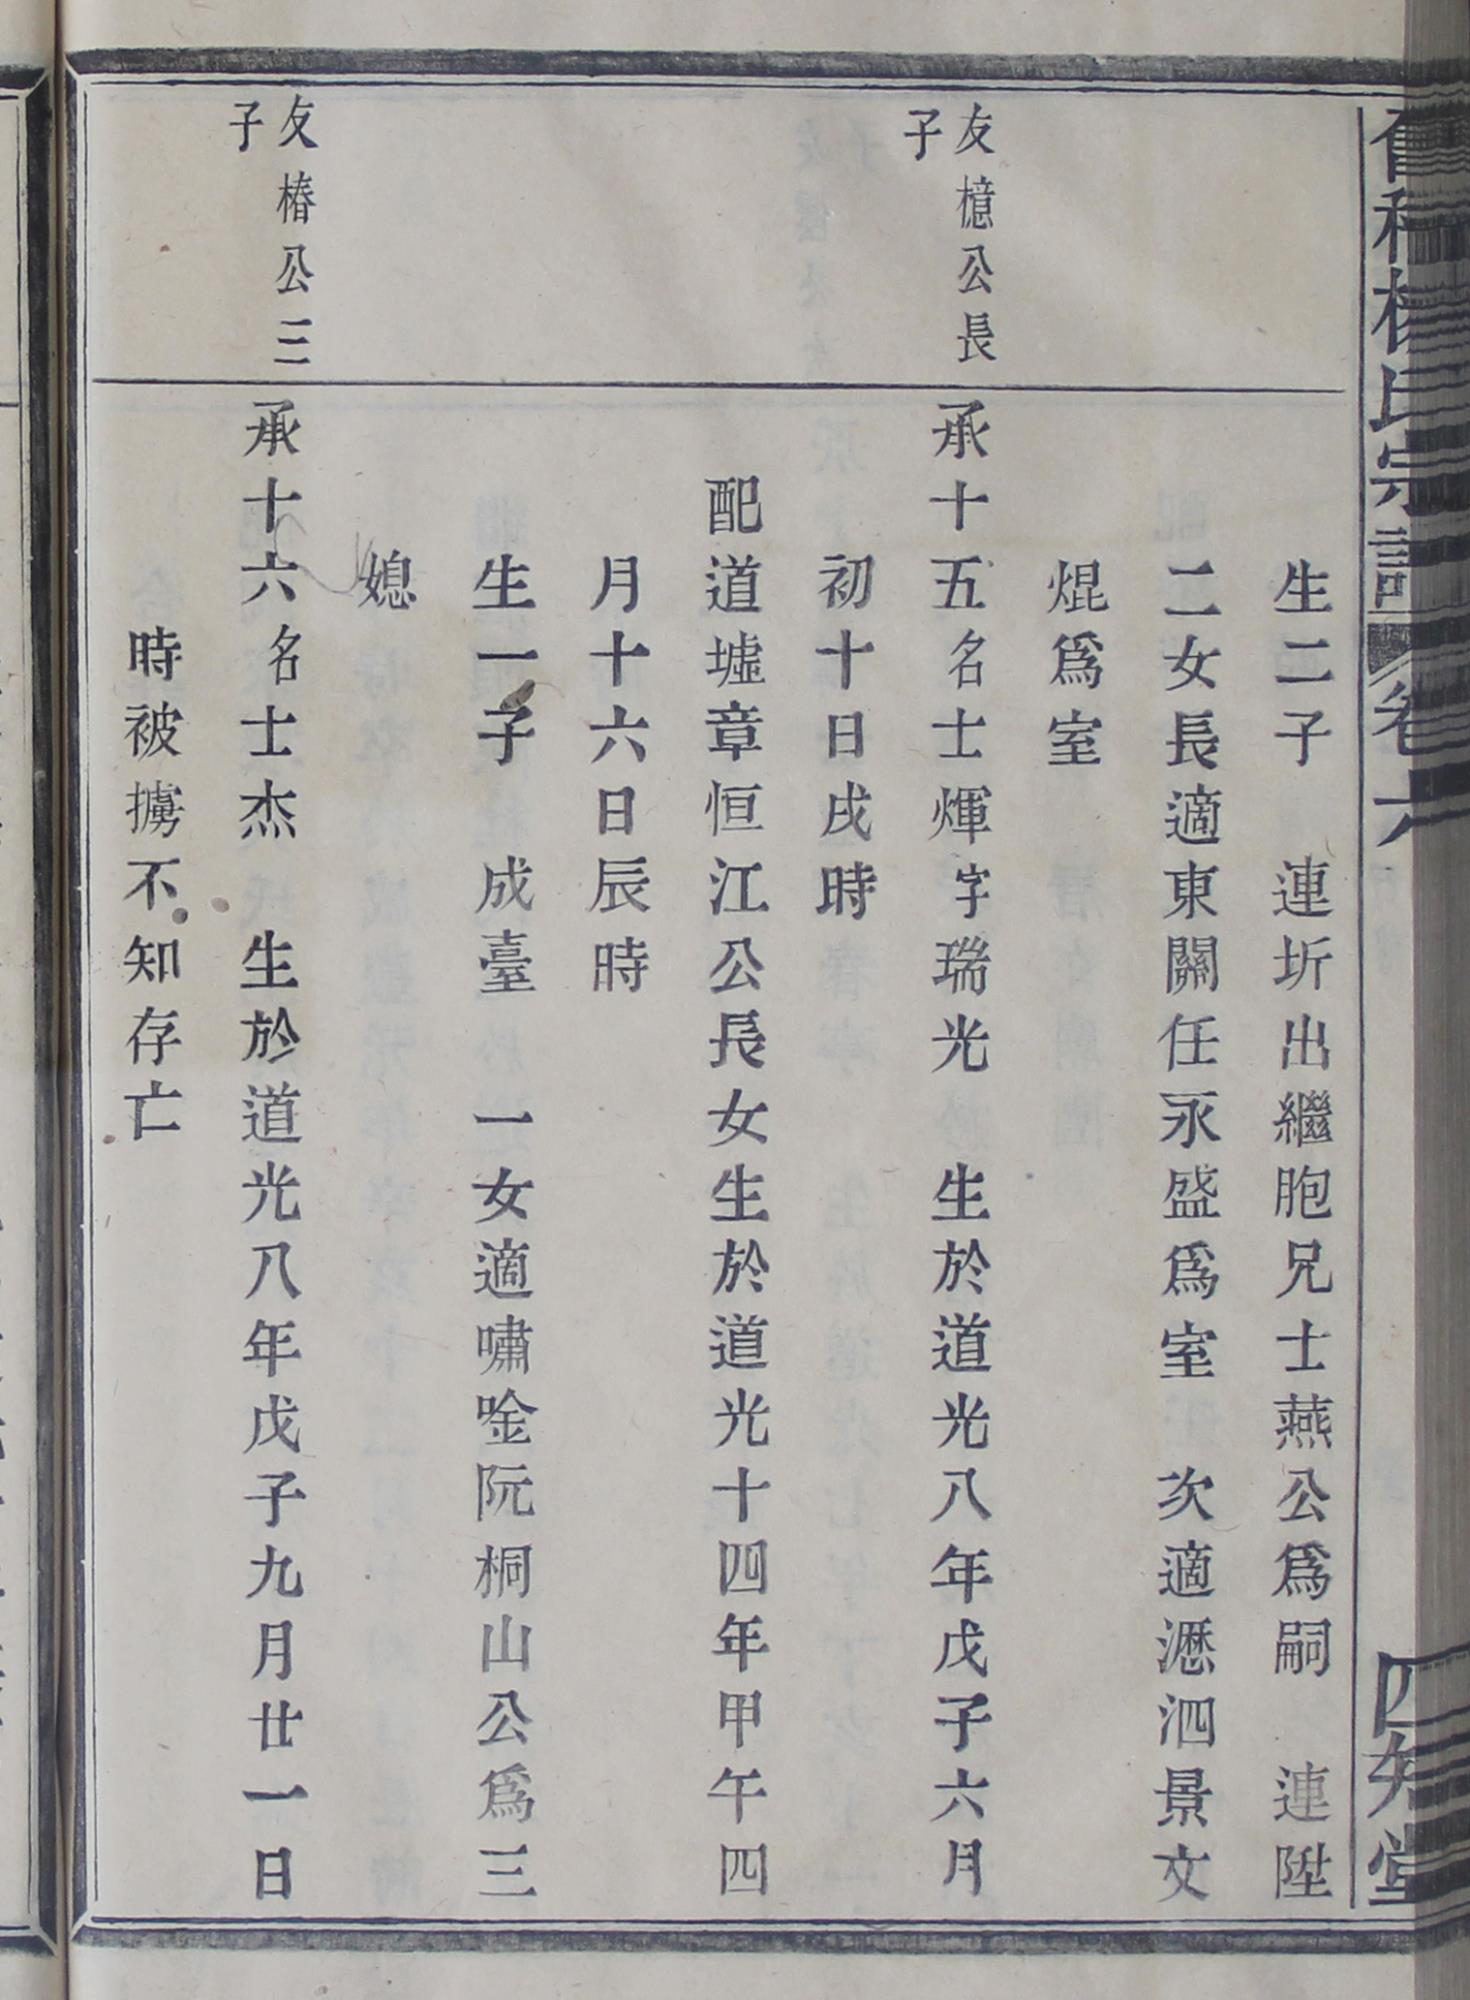 宗譜 卷六 四知堂
生二子 連圻出繼胞兄士燕公爲嗣 連陞
二女長適東關任永盛爲室 次適瀝泗景文
焜爲室
友檍公長
子
承十五名士煇字瑞光 生於道光八年戊子六月
初十日戌時
配道墟章恒江公長女生於道光十四年甲午四
月十六日辰時
生一子 成臺 一女適嘯唫阮桐山公爲三
媳
友椿公三
子
承十六名士杰 生於道光八年戊子九月廿一日
時被擄不知存亡